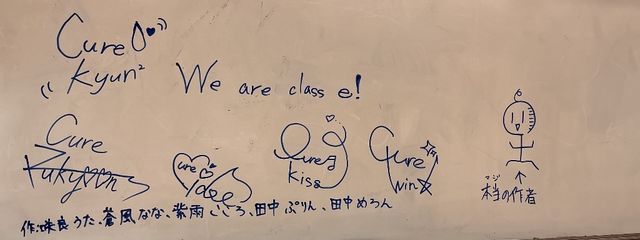 Cure
Kyun²
We are class e!
Cure
Cure
Cure
Kiss
Cure
Win
マジ
本当の作者
作:咲良うた、蒼風なな、紫雨こころ、田中ぷりん、田中めろん